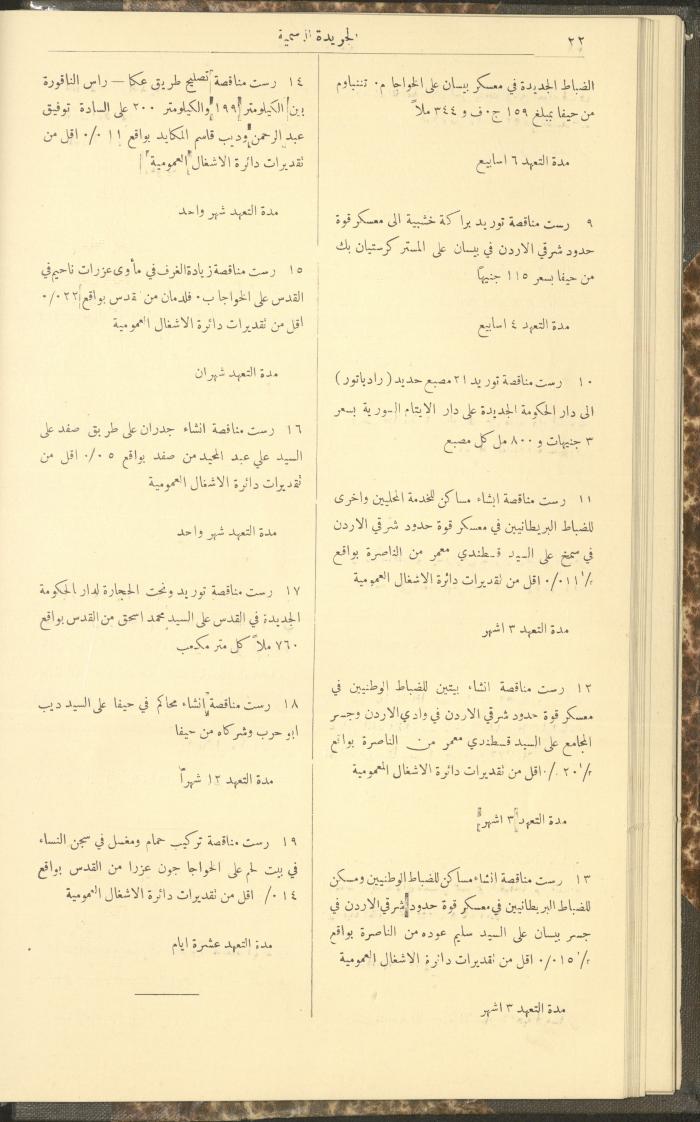 ٢٢
الجريدة الرسمية
الضباط الجديدة في معسكر بيسان على الخواجا م٠ تننباوم
من حيفا بمبلغ ١٥٩ ج٠ف و ٣٤٤ ملاً
مدة التعهد ٦ اسابيع
٩ رست مناقصة توريد براكة خشبية الى معسكر قوة
حدود شرقي الاردن في بيسان على المستر كرستيان بك
من حيفا بسعر ١١٥ جنيهاً
مدة التعهد ٤ اسابيع
١٠ رست مناقصة توريد ٢١ مصبع حديد (رادياتور)
الى دار الحكومة الجديدة على دار الايتام السورية بسعر
٣ جنيهات و ٨٠٠ مل كل مصبع
١١ رست مناقصة انشاء مساكن للخدمة المحليين واخرى
للضباط البريطانيين في معسكر قوة حدود شرقي الاردن
في سمخ على السيد قسطندي معمر من الناصرة بواقع
١/٢ ١١ ٠/٠ اقل من تقديرات دائرة الاشغال العمومية
مدة التعهد ٣ اشهر
١٢ رست مناقصة انشاء بيتين للضباط الوطنيين في
معسكر قوة حدود شرقي الاردن في وادي الاردن وجسر
المجامع على السيد قسطندي معمر من الناصرة بواقع
١/٢ ٢٠ ٠/٠ اقل من تقديرات دائرة الاشغال العمومية
مدة التعهد ٣ اشهر
١٣ رست مناقصة انشاء مساكن للضباط الوطنيين ومسكن
للضباط البريطانيين في معسكر قوة حدود شرقي الاردن في
جسر بيسان على السيد سليم عوده من الناصرة بواقع
١/٢ ١٥ ٠/٠ اقل من تقديرات دائرة الاشغال العمومية
مدة التعهد ٣ اشهر
١٤ رست مناقصة تصليح طريق عكا — راس الناقورة
بين الكيلومتر ١٩٩ والكيلومتر ٢٠٠ على السادة توفيق
عبد الرحمن وديب قاسم المكايد بواقع ١١ ٠/٠ اقل من
تقديرات دائرة الاشغال العمومية
مدة التعهد شهر واحد
١٥ رست مناقصة زيادة الغرف في مأوى عزرات ناحيم في
القدس على الخواجا ب٠ فلدمان من القدس بواقع ٢٢ ٠/٠
اقل من تقديرات دائرة الاشغال العمومية
مدة التعهد شهران
١٦ رست مناقصة انشاء جدران على طريق صفد على
السيد علي عبد المجيد من صفد بواقع ٥ ٠/٠ اقل من
تقديرات دائرة الاشغال العمومية
مدة التعهد شهر واحد
١٧ رست مناقصة توريد ونحت الحجارة لدار الحكومة
الجديدة في القدس على السيد محمد اسحق من القدس بواقع
٧٦٠ ملاً كل متر مكعب
١٨ رست مناقصة انشاء محاكم في حيفا على السيد ديب
ابو حرب وشركاه من حيفا
مدة التعهد ١٢ شهراً
١٩ رست مناقصة تركيب حمام ومغسل في سجن النساء
في بيت لحم على الخواجا جون عزرا من القدس بواقع
١٤ ٠/٠ اقل من تقديرات دائرة الاشغال العمومية
مدة التعهد عشرة ايام